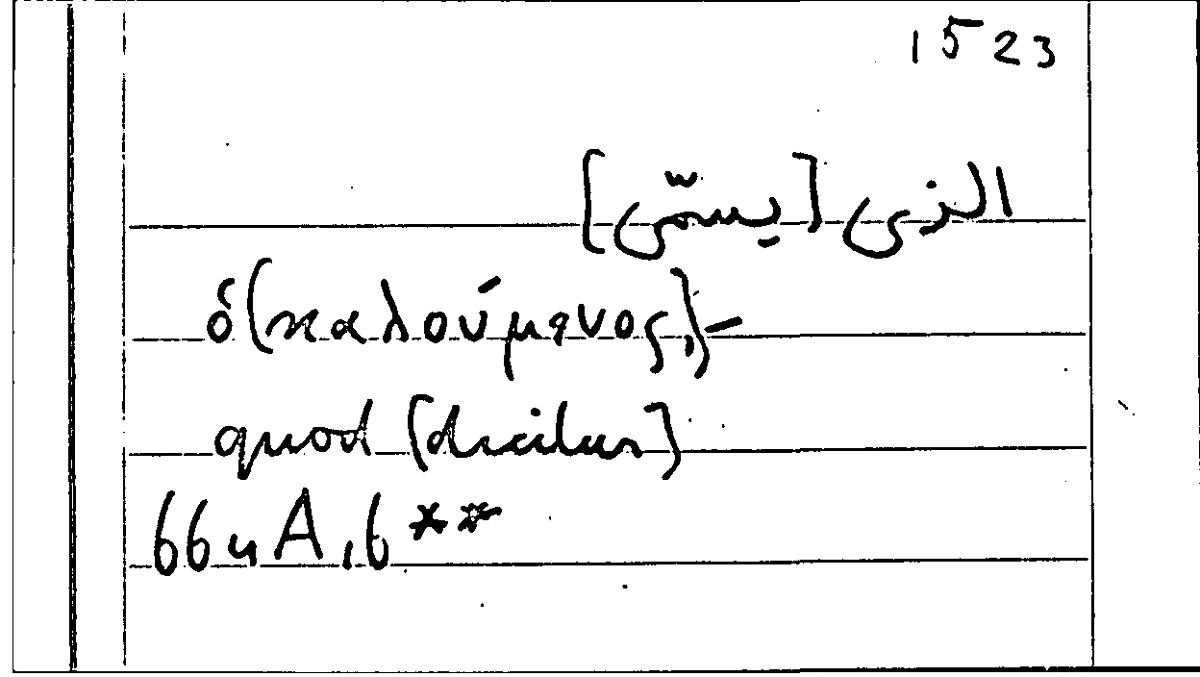 1523
الذى [يسمّى]
ὁ (καλούμενος,)-
quod [dicitur]
66 u A, 6**